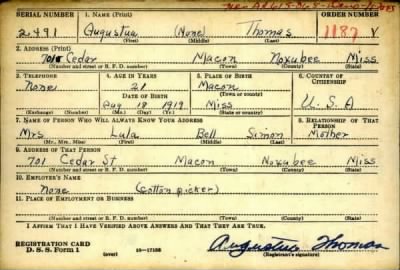 SERIAL NUMBER 1. NAME (Print) ORDER NUMBER
2491 Augustua (None) Thomas 1187 V
(First) (Middle) (Last)
2. ADDRESS (Print)
701 Cedar Macon Noxubee Miss
(Number and street or R. F. D. number) (Town) (County) (State)
3. TELEPHONE 4. AGE IN YEARS 5. PLACE OF BIRTH 6. COUNTRY OF CITIZENSHIP
None 21 Macon
DATE OF BIRTH (Town or county)
Aug 18 1919 Miss U.S.A
(Exchange) (Number) (Mo.) (Day) (Yr.) (State or country)
7. NAME OF PERSON WHO WILL ALWAYS KNOW YOUR ADDRESS 8. RELATIONSHIP OF THAT PERSON
Mrs Lula Bell Simon Mother
(Mr., Mrs., Miss) (First) (Middle) (Last)
9. ADDRESS OF THAT PERSON
701 Cedar St Macon Noxubee Miss
(Number and street or R. F. D. number) (Town) (County) (State)
10. EMPLOYER'S NAME
None (cotton picker)
11. PLACE OF EMPLOYMENT OR BUSINESS
(Number and street or R. F. D. number) (Town) (County) (State)
I AFFIRM THAT I HAVE VERIFIED ABOVE ANSWERS AND THAT THEY ARE TRUE.
REGISTRATION CARD
D. S. S. FORM 1 (over) 16-17105 Augustua Thomas
(Registrant's signature)